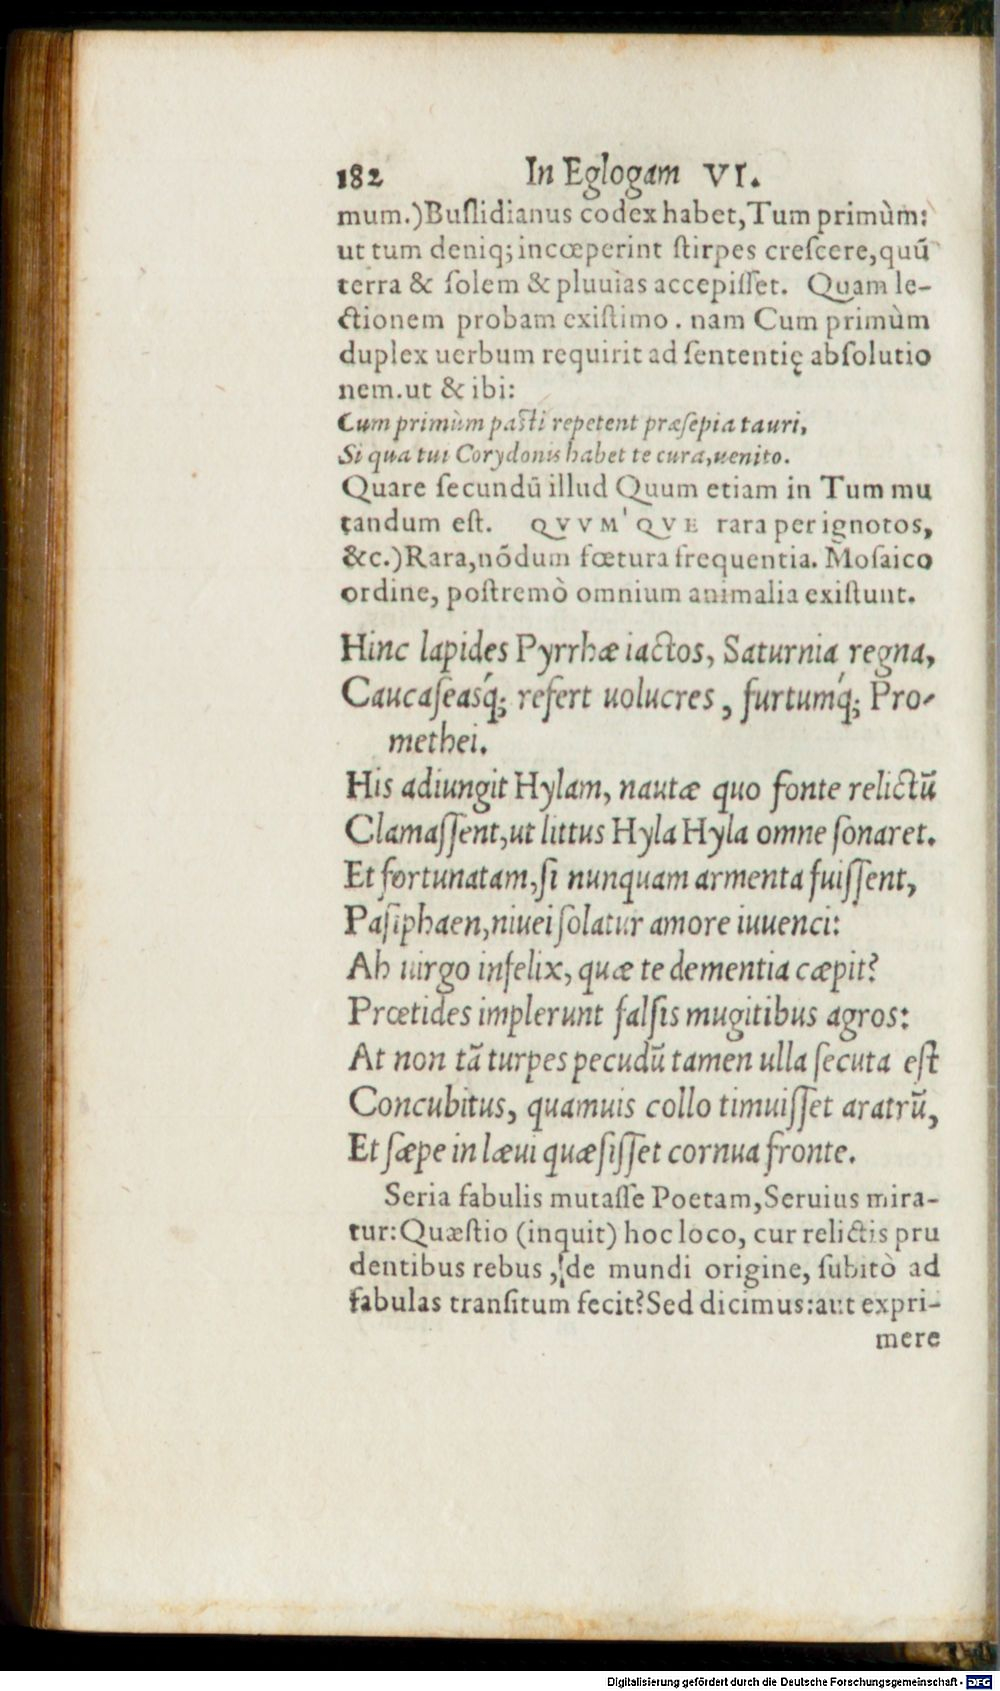 182 In Eglogam VI.
mum.)Buſlidianus codex habet,Tum primùm:
ut tum deniq; incœperint ſtirpes creſcere,quũ
terra & ſolem & pluuias accepiſſet. Quam le-
ctionem probam exiſtimo . nam Cum primùm
duplex uerbum requirit ad ſententię abſolutio
nem.ut & ibi:
Cum primùm paſti repetent præſepia tauri,
Si qua tui Corydonis habet te cura,uenito.
Quare ſecundũ illud Quum etiam in Tum mu
tandum eſt. QVVM'QVE rara per ignotos,
&c.)Rara,nõdum fœtura frequentia. Moſaico
ordine, poſtremò omnium animalia exiſtunt.
Hinc lapides Pyrrhæ iactos, Saturnia regna,
Caucaſeasq́; refert uolucres , furtumq́; Pro-
methei.
His adiungit Hylam, nautæ quo fonte relictũ
Clamaſſent,ut littus Hyla Hyla omne ſonaret.
Et fortunatam,ſi nunquam armenta fuiſſent,
Paſiphaen,niuei ſolatur amore iuuenci:
Ah uirgo infelix, quæ te dementia cæpit?
Prœtides implerunt falſis mugitibus agros:
At non tã turpes pecudũ tamen ulla ſecuta eſt
Concubitus, quamuis collo timuiſſet aratrũ,
Et ſæpe in læui quæſiſſet cornua fronte.
Seria fabulis mutaſſe Poetam,Seruius mira-
tur:Quæſtio (inquit) hoc loco, cur relictis pru
dentibus rebus , de mundi origine, ſubitò ad
fabulas tranſitum fecit?Sed dicimus:aut expri-
mere
Digitalisierung gefördert durch die Deutsche Forschungsgemeinschaft - DFG